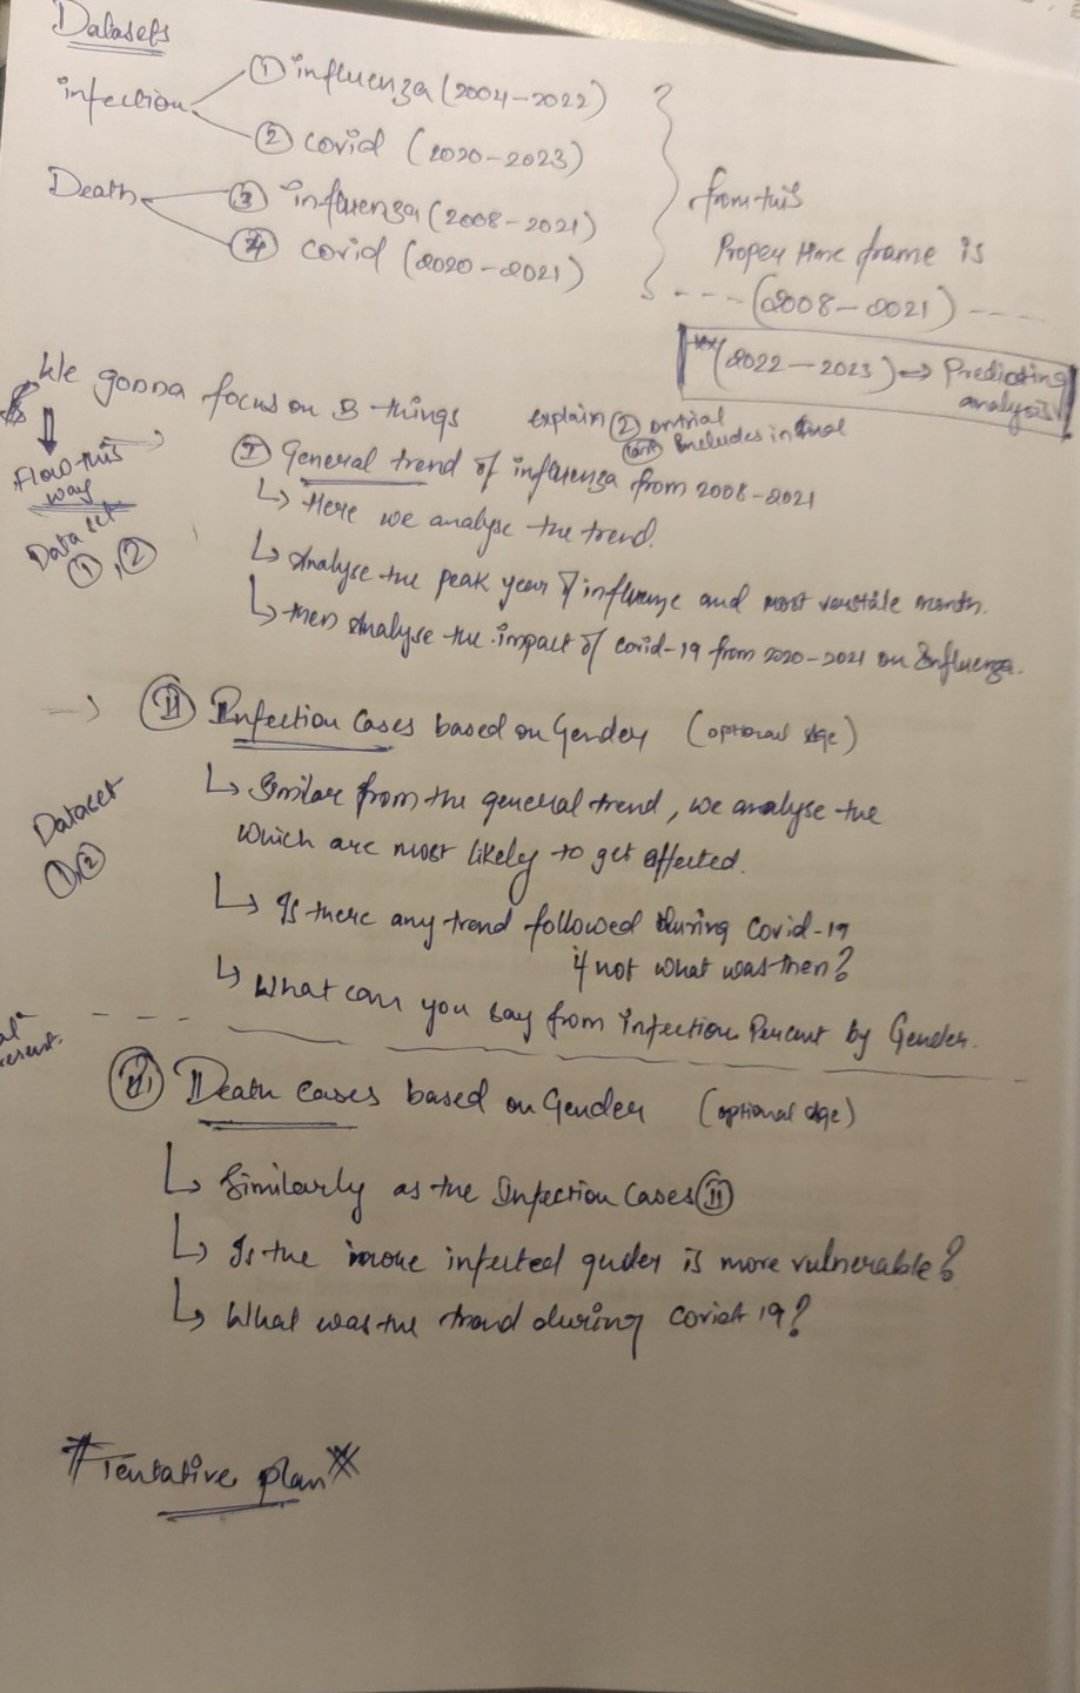 Datasets
infection
① influenza (2004-2022)
② covid (2020-2023)
Death
③ influenza (2008-2021)
④ covid (2020-2021)
from this
Proper time frame is
---- (2008-2021) ----
**(2022-2023) => Predicting
analysis
We gonna focus on 3 things
explain ② on trial
includes in final
Flow this
way
Data set
①,②
Ⓘ General trend of influenza from 2008-2021
↳ Here we analyse the trend.
↳ Analyse the peak year of influenze and most month.
↳ then Analyse the impact of covid-19 from 2020-2021 on Influenza.
→ Ⓘⓘ Infection Cases based on Gender (optional age)
Dataset
①,②
↳ Similar from the general trend, we analyse the
which are most likely to get affected.
↳ Is there any trend followed during Covid-19
if not what was then?
↳ What can you say from infection Percent by Gender.
III Death Cases based on Gender (optional age)
↳ Similarly as the Infection Cases II
↳ Is the more infected gender is more vulnerable?
↳ What was the trend during Covid 19?
*Tentative plan*